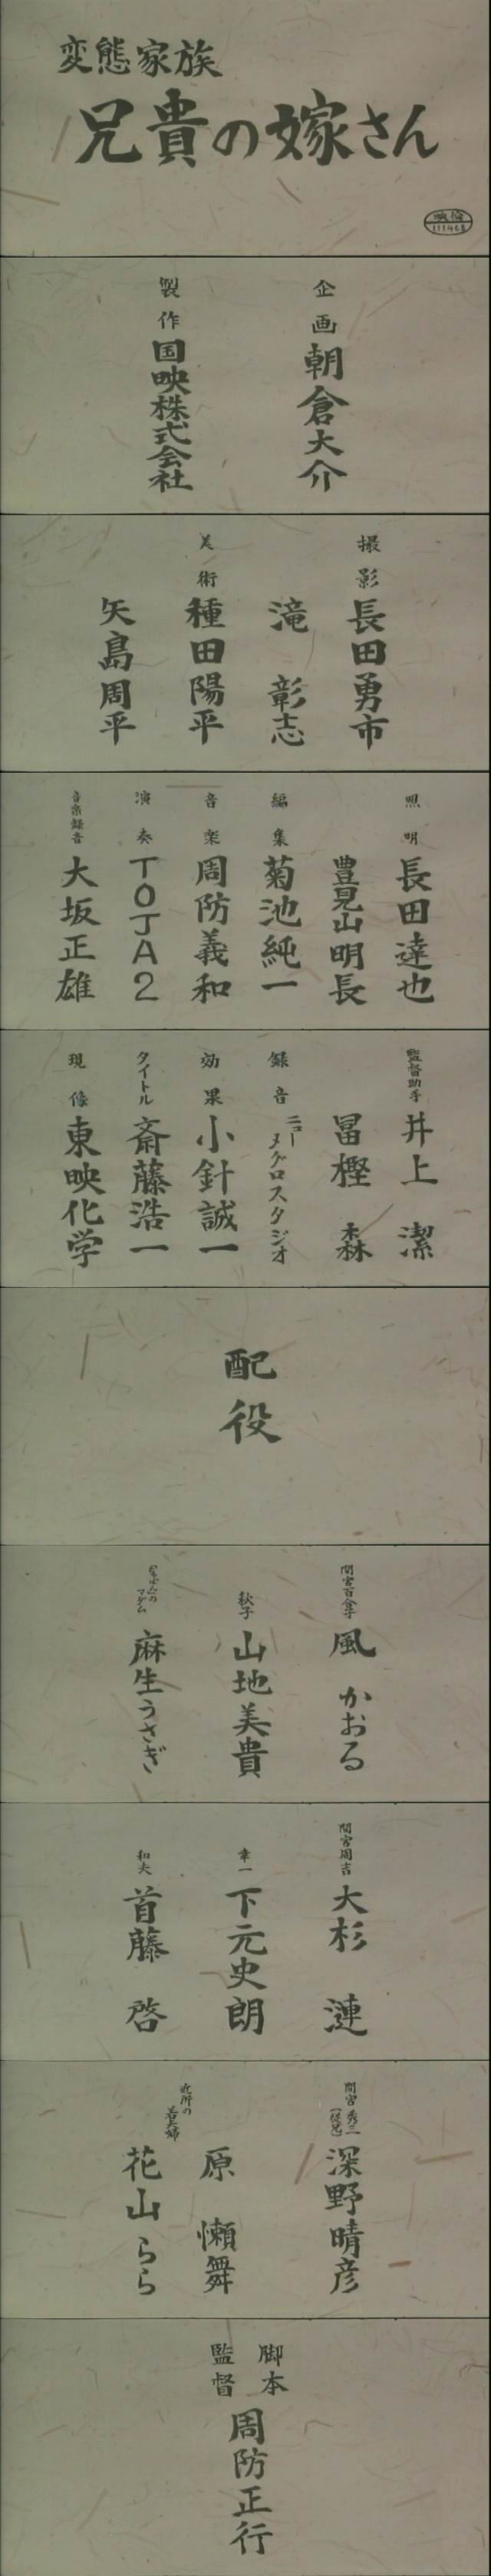 変態家族
兄貴の嫁さん
映倫
111468
企画 朝倉大介
製作 国映株式会社
撮影 長田勇市
滝 彰志
美術 種田陽平
矢島周平
照明 長田達也
豊見山明長
編集 菊池純一
音楽 周防義和
演奏 TOJA2
音楽録音 大坂正雄
監督助手 井上 潔
冨樫 森
録音 ニューメグロスタジオ
効果 小針誠一
タイトル 斎藤浩一
現像 東映化学
配役
間宮百合子 風 かおる
秋子 山地美貴
マダム 麻生うさぎ
間宮周吉 大杉 漣
幸一 下元史朗
和夫 首藤 啓
間宮秀三 深野晴彦
近所の若夫婦
原 懶舞
花山らら
脚本
監督
周防正行